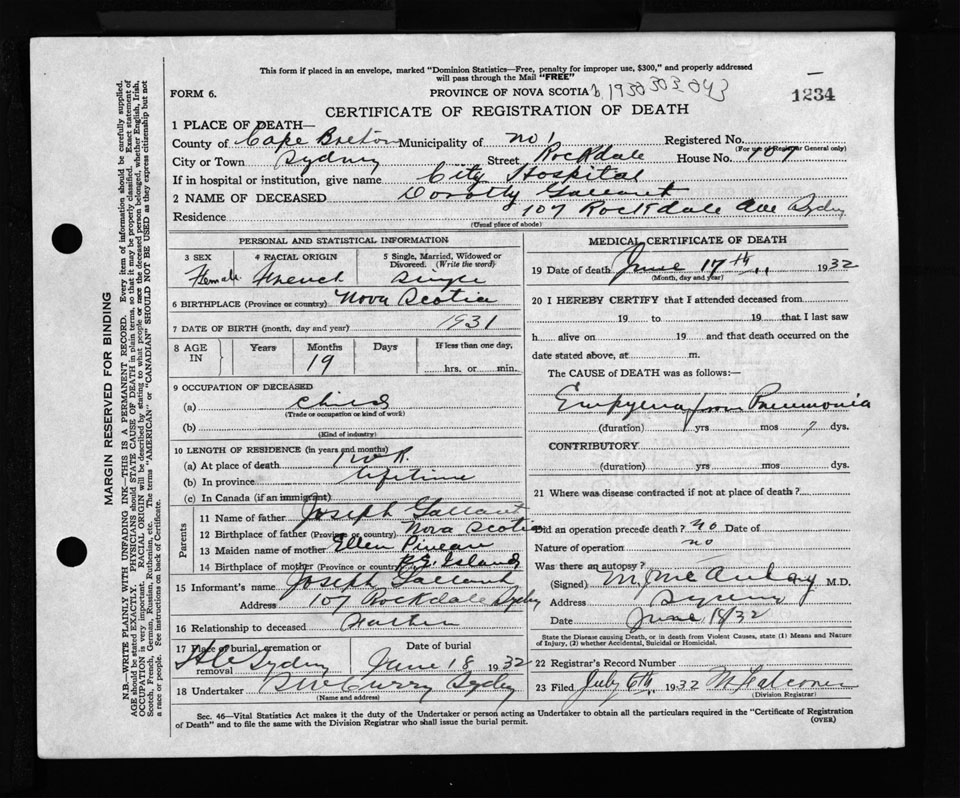 This form if placed in an envelope, marked "Dominion Statistics—Free, penalty for improper use, $300," and properly addressed
will pass through the Mail "FREE"
FORM 6. PROVINCE OF NOVA SCOTIA 1930303043 1234
CERTIFICATE OF REGISTRATION OF DEATH
1 PLACE OF DEATH—
County of Cape Breton Municipality of No 1 Registered No.
(For use of Registrar General only)
City or Town Sydney Street Rockdale House No. 107
If in hospital or institution, give name City Hospital
2 NAME OF DECEASED Dorothy Gallant
Residence 107 Rockdale Ave Sydney
(Usual place of abode)
PERSONAL AND STATISTICAL INFORMATION
3 SEX 4 RACIAL ORIGIN 5 Single, Married, Widowed or Divorced. (Write the word)
Female French Single
6 BIRTHPLACE (Province or country) Nova Scotia
7 DATE OF BIRTH (month, day and year) 1931
8 AGE IN Years Months Days If less than one day,
19 hrs. or min.
9 OCCUPATION OF DECEASED
(a) Child
(Trade or occupation or kind of work)
(b)
(Kind of industry)
10 LENGTH OF RESIDENCE (in years and months)
(a) At place of death 1 wk.
(b) In province lifetime
(c) In Canada (if an immigrant)
Parents
11 Name of father Joseph Gallant
12 Birthplace of father (Province or country) Nova Scotia
13 Maiden name of mother Ellen Pineau
14 Birthplace of mother (Province or country) P.E. Island
15 Informant's name Joseph Gallant
Address 107 Rockdale Sydney
16 Relationship to deceased Father
17 Place of burial, cremation or removal Date of burial
Sydney June 18 1932
18 Undertaker McCurry Sydney
(Name and address)
MEDICAL CERTIFICATE OF DEATH
19 Date of death June 17th 1932
(Month, day and year)
20 I HEREBY CERTIFY that I attended deceased from
19 to 19 that I last saw
h alive on 19 and that death occurred on the
date stated above, at m.
The CAUSE of DEATH was as follows:—
Empyema from Pneumonia
(duration) yrs mos 7 dys.
CONTRIBUTORY
(duration) yrs mos dys.
21 Where was disease contracted if not at place of death?
Did an operation precede death? no Date of
Nature of operation no
Was there an autopsy?
(Signed) M. McAulay M.D.
Address Sydney
Date June 18/32
State the Disease causing Death, or in death from Violent Causes, state (1) Means and Nature
of Injury, (2) whether Accidental, Suicidal or Homicidal.
22 Registrar's Record Number
23 Filed July 6th 1932 Falconer
(Division Registrar)
Sec. 46—Vital Statistics Act makes it the duty of the Undertaker or person acting as Undertaker to obtain all the particulars required in the "Certificate of Registration
of Death" and to file the same with the Division Registrar who shall issue the burial permit. (OVER)
MARGIN RESERVED FOR BINDING
N.B.—WRITE PLAINLY WITH UNFADING INK—THIS IS A PERMANENT RECORD. Every item of information should be carefully supplied.
AGE should be stated EXACTLY. PHYSICIANS should STATE CAUSE OF DEATH in plain terms, so that it may be properly classified. Exact statement of
OCCUPATION is very important. RACIAL ORIGIN will be described by stating to what people or race the deceased person belonged, whether English, Irish,
Scotch, French, German, Russian, Ruthenian, etc. The terms "AMERICAN" or "CANADIAN" SHOULD NOT BE USED as they express citizenship but not
a race or people. See instructions on back of Certificate.